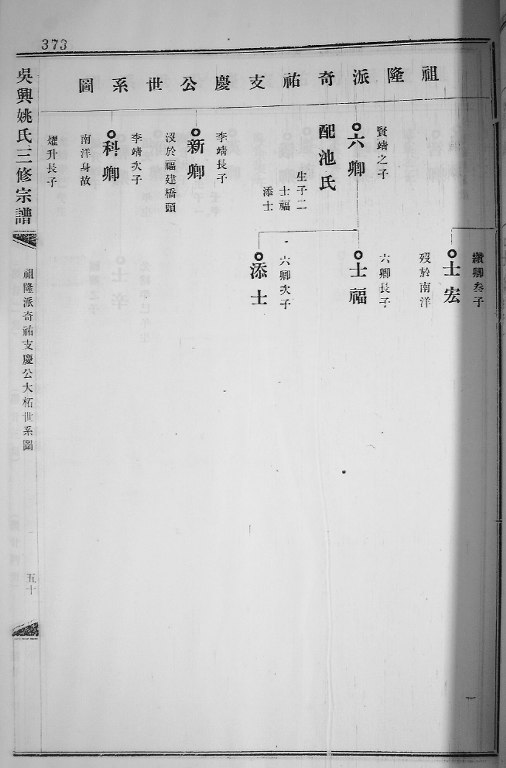 373
祖隆派奇祐支慶公世系圖
卿叁子
士宏
歿於南洋
賢靖之子
六卿
配池氏
生子二
士福
添士
六卿長子
士福
六卿次子
添士
李靖長子
新卿
沒於福建橋頭
李靖次子
科卿
南洋身故
燿升長子
吳興姚氏三修宗譜
祖隆派奇祐支慶公大柘世系圖
五十